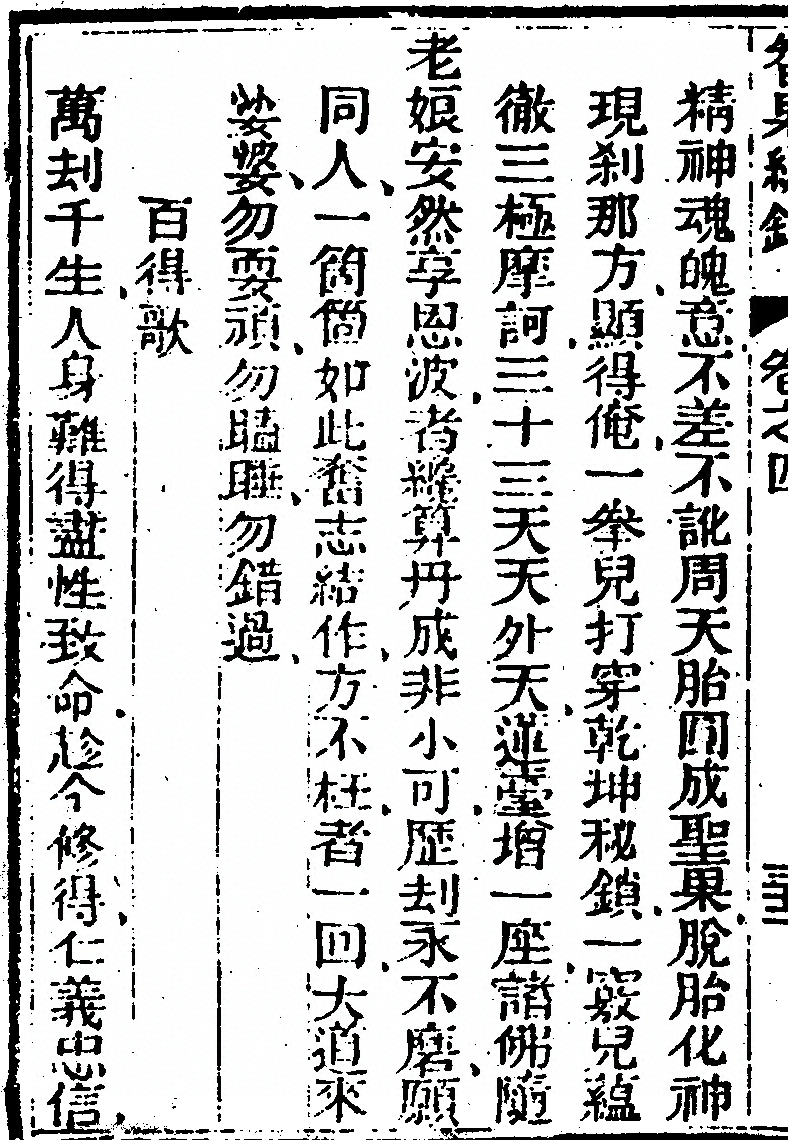 卷之四
精神魂魄意不差不訛周天胎圓成聖果脫胎化神
現刹那方顯得俺一舉兒打穿乾坤秘鎖一竅兒蘊
徹三極摩訶三十三天天外天蓮臺增一座諸佛隨
老娘安然享恩波者纔算丹成非小可歷刦永不磨願
同人一箇箇如此奮志結作方不枉者一回大道來
娑婆勿耍頑勿瞌睡勿錯過
百得歌
萬刦千生人身難得盡性致命趁今修得仁義忠信